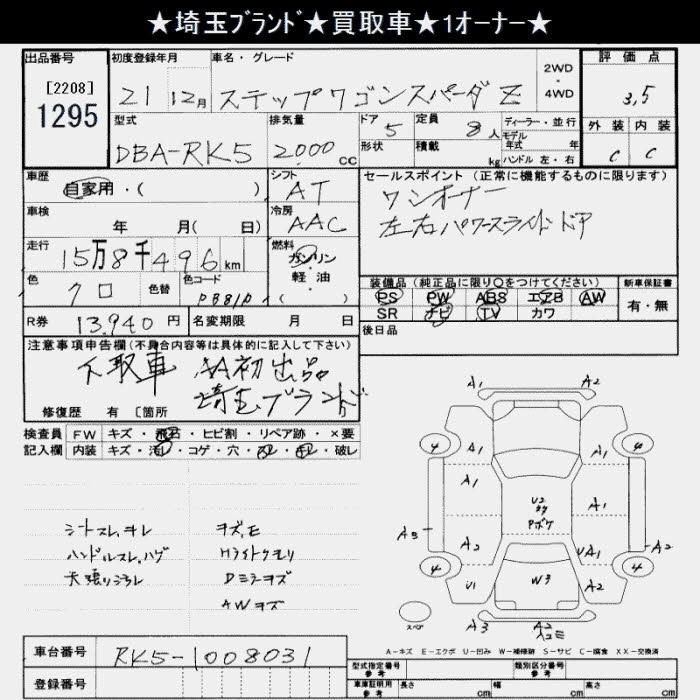 ★埼玉ﾌﾞﾗﾝﾄﾞ★買取車★1オーナー★
出品番号 初度登録年月 車名・グレード 2WD・4WD 評価点
[2208]
1295
21 12月 ステップワゴンスパーダ Z 3,5
型式 排気量 ドア 定員 ディーラー・並行 外装 内装
DBA-RK5 2000cc 5 8人 モデル年式 年 C C
形状 積載 kg ハンドル 左・右
車歴 シフト セールスポイント (正常に機能するものに限ります)
自家用・( ) AT ワンオーナー
車検 年 月( 日) 冷房 AAC 左右パワースライドドア
走行 15万8千496km 燃料 ガソリン
軽・油
( )
色 クロ 色替 色コード PB81P
装備品 (純正品に限り○をつけてください) 新車保証書
PS PW ABS エアB AW 有・無
SR ナビ TV カワ
R券 13,940円 名変期限 月 日 後日品
注意事項申告欄(不身台内容等は具体的に記入して下さい)
下取車 AA初出品
埼玉ブランド
修復歴 有 〔箇所
検査員 FW キズ・飛石・ヒビ割・リペア跡・×要
記入欄 内装 キズ・汚れ・コゲ・穴・スレ・ 破レ
シートスレ,ヨレ
ハンドルスレ,ハゲ
天張りシミレ
Hライトクモリ
Dミラーキズ
AWキズ
A1 A2
4 A1 4
A1 A1
U2
Pボケ
A3 A2 UA1 A2
4 4
U1 W3 A2
スペア A3 A2
A-キズ E-エクボ U-凹み W-補修跡 S-サビ C-腐食 XX-交換済
車台番号 RK5-1008031
登録番号
型式指定番号 参考 類別区分番号
車庫証明用 参考 長さ cm 幅 cm 高さ cm